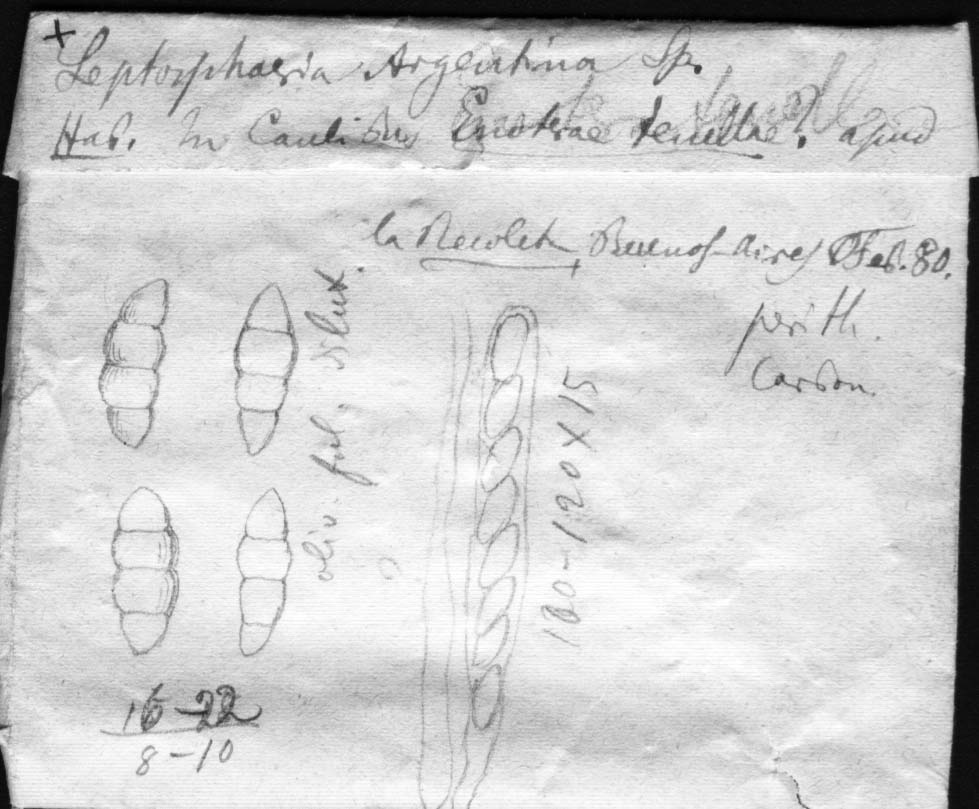 +
Leptosphaeria Argentina Sp.
Hab. In Caulibus Enotherae tenellae? apud
la Recoleta, Buenos-Aires Feb. 80.
perith.
Carbon.
oliv. ful. dilut.
100-120 X 15
16-22
8-10